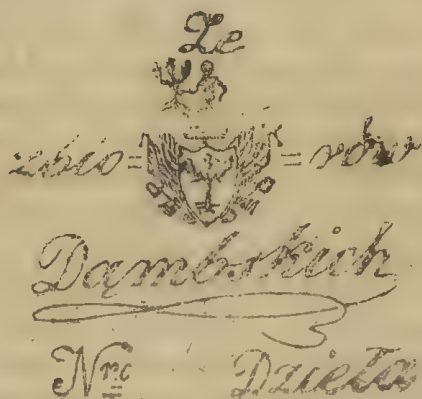 Ze
zbio= =rów
Dąmbskich
Nrc Dzieła